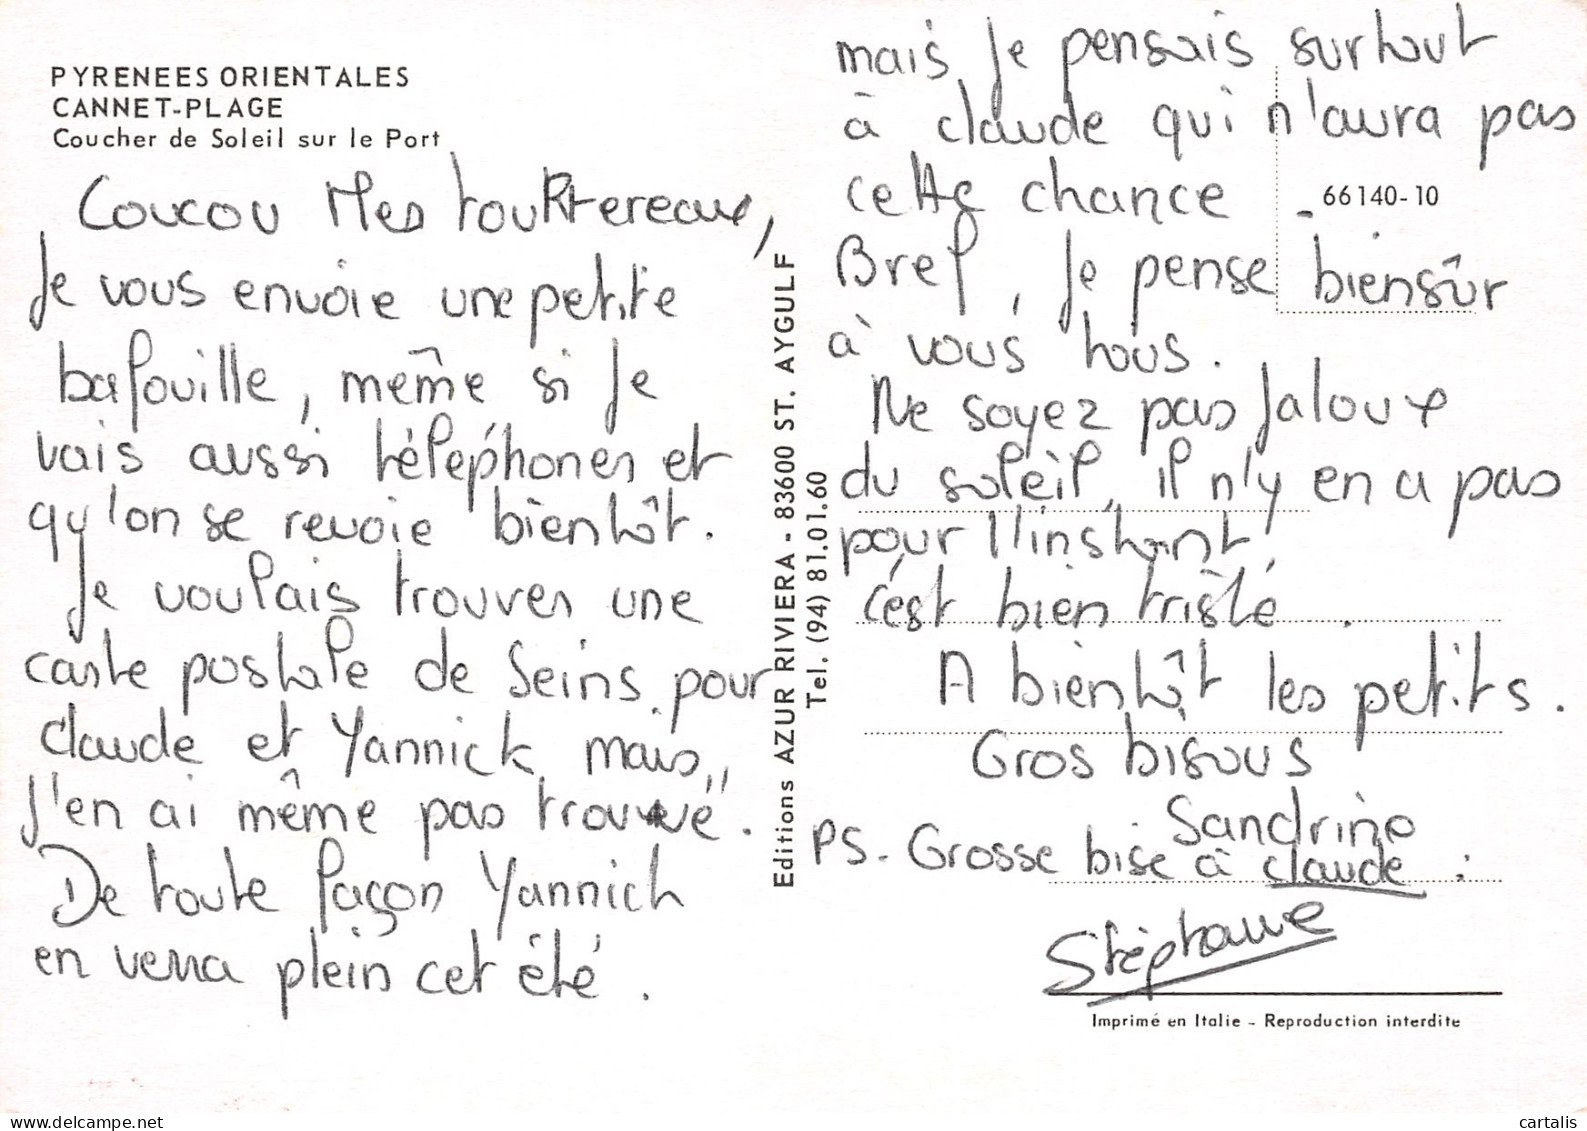 PYRENEES ORIENTALES
CANNET-PLAGE
Coucher de Soleil sur le Port
Coucou Mes tourtereaux,
Je vous envoie une petite
bafouille, même si je
vais aussi téléphoner et
qu'on se revoie bientôt.
Je voulais trouver une
carte postale de Seins pour
Claude et Yannick, mais,,
j'en ai même pas trouvé.
De toute façon Yannick
en verra plein cet été.
Editions AZUR RIVIERA - 83600 ST. AYGULF
Tel. (94) 81.01.60
mais je pensais surtout
à claude qui n'aura pas
cette chance
66140-10
Bref, je pense biensûr
à vous tous.
Ne soyez pas jaloux
du soleil, il n'y en a pas
pour l'instant
c'est bien triste.
A bientôt les petits.
Gros bisous
Sandrine
PS. Grosse bise à claude :
Stéphane
Imprimé en Italie - Reproduction interdite
cartalis